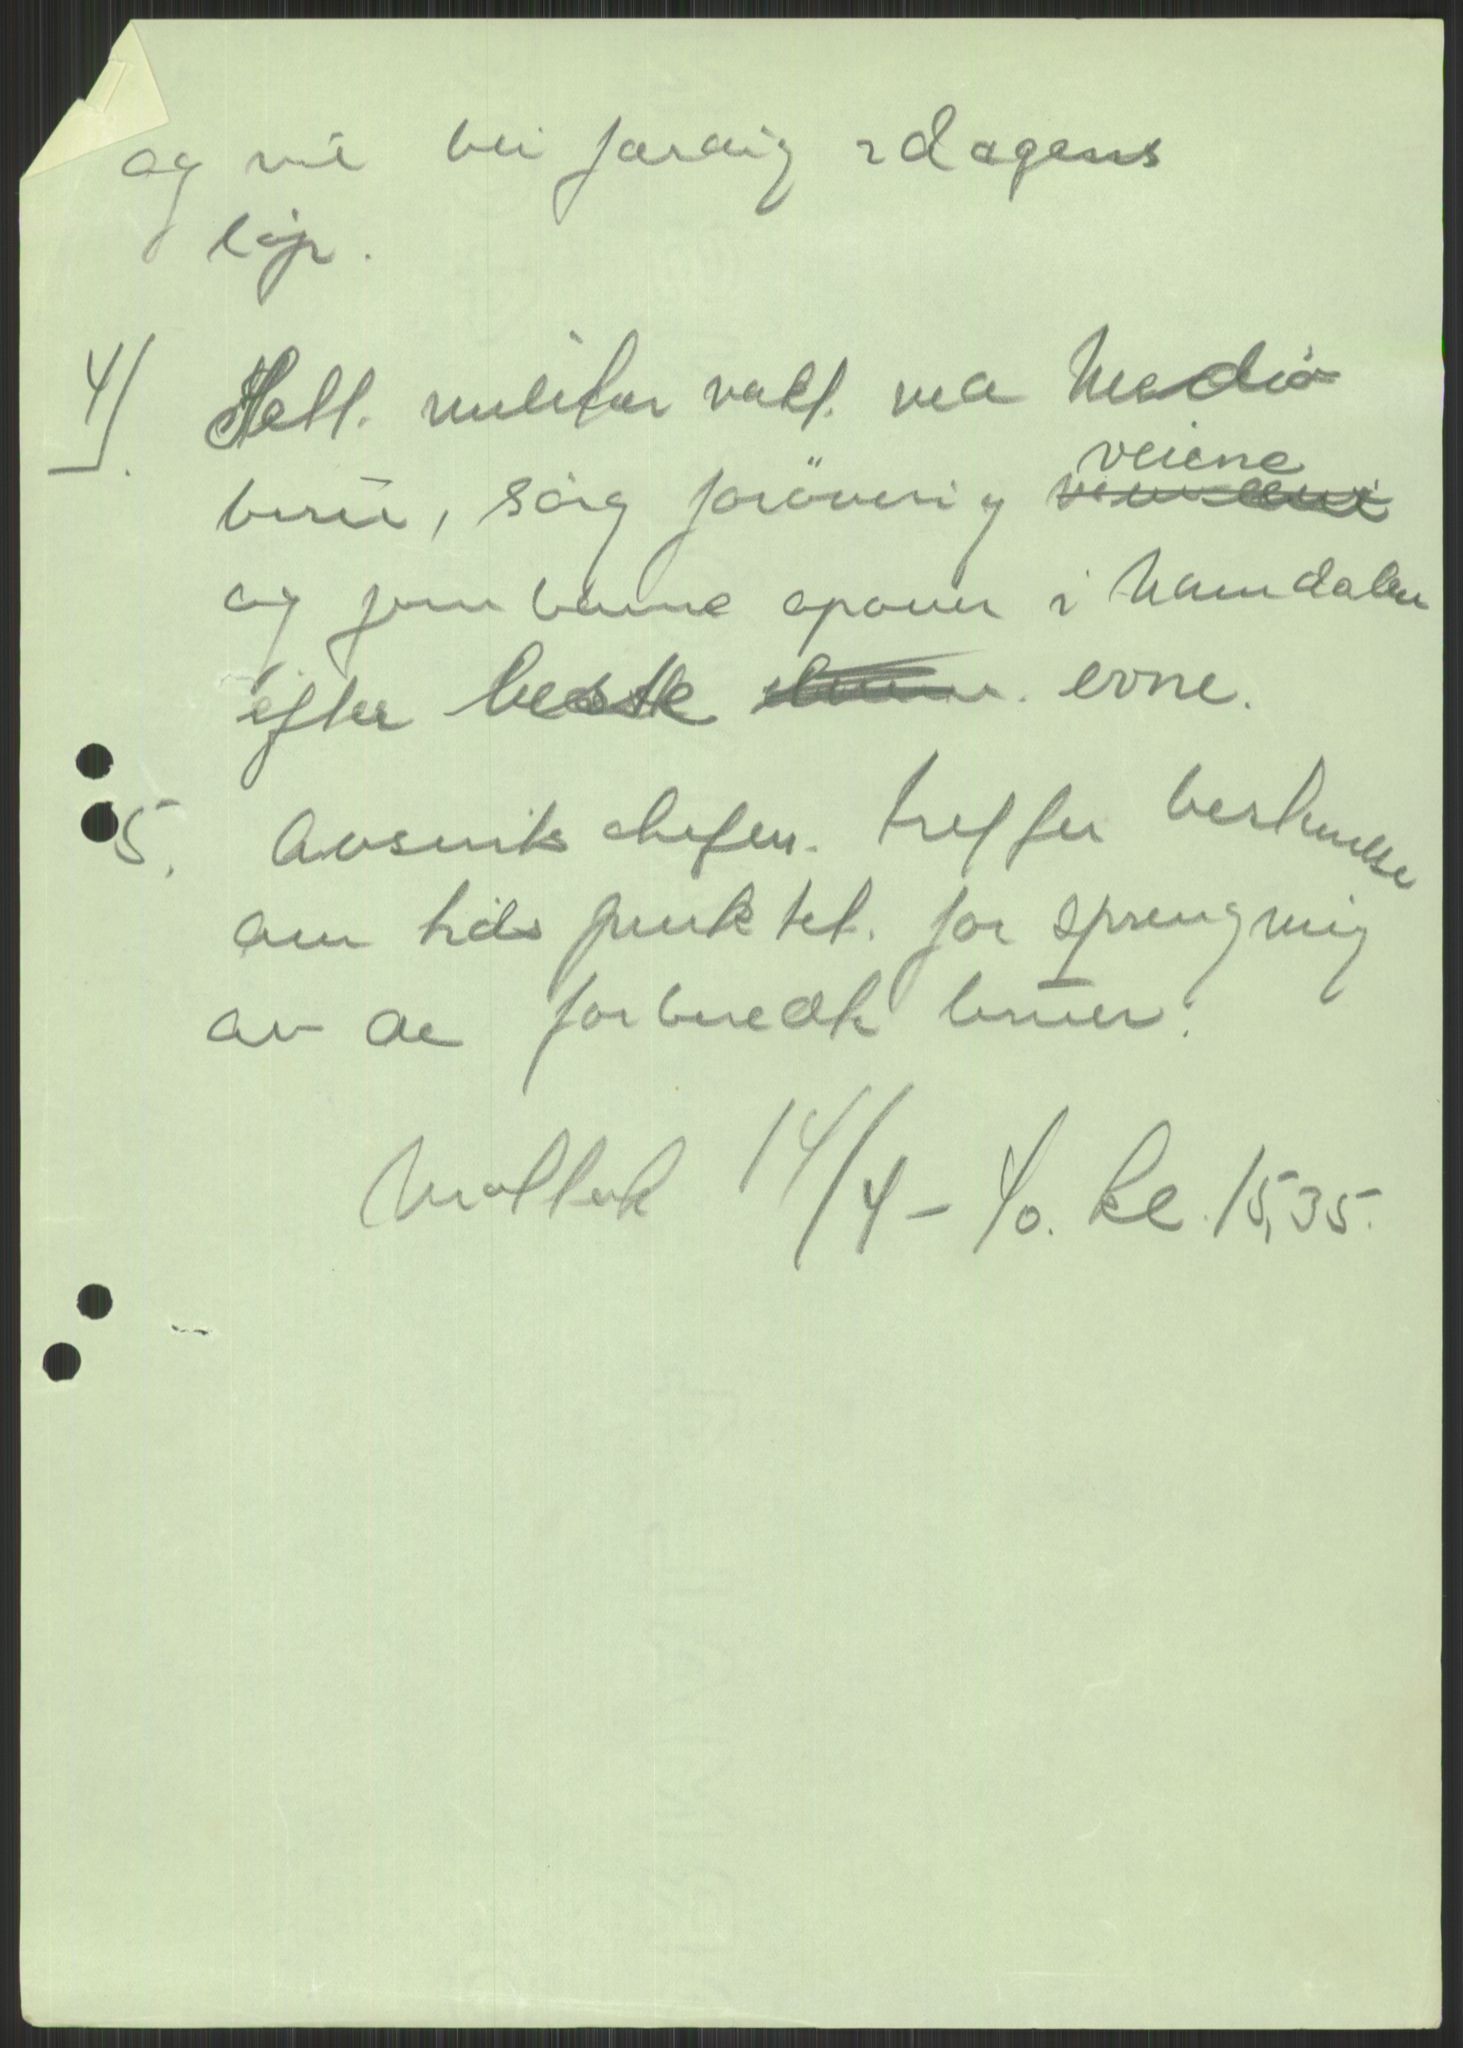 og vil bli færdig i dagens
løp.
4). Sett militær vakt ved Mediå
bru, sørg forøvrig veiene
og jernbanene åpne i Namdalen
efter beste evne.
5. Avsnitschefen treffer bestemmelse
om tidspunktet for sprengning
av de forberedte bruer.
14/4-40. kl. 15,35.